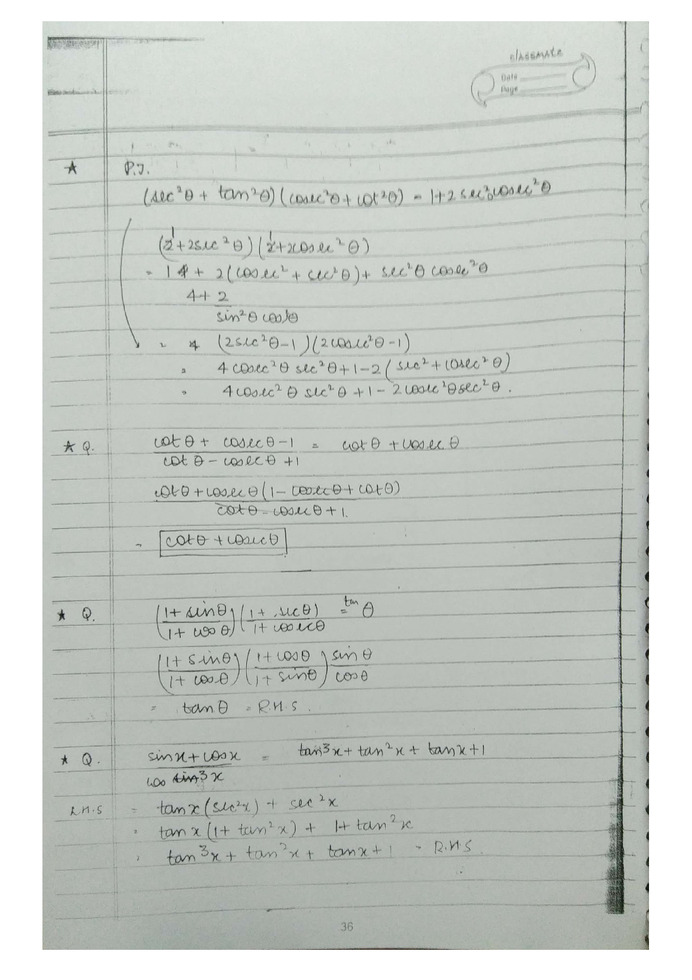 classmate
Date
Page
★ P.T.
(sec²θ + tan²θ)(cosec²θ + cot²θ) = 1+2 sec²θcosec²θ
(1+2sec²θ)(1+2cosec²θ)
= 1 + 2(cosec² + sec²θ) + sec²θ cosec²θ
4 + 2
sin²θ cos²θ
= (2sec²θ-1)(2cosec²θ-1)
= 4cosec²θ sec²θ+1-2(sec²+cosec²θ)
= 4cosec²θ sec²θ +1-2cosec²θsec²θ.
★ Q. cotθ + cosecθ-1 = cotθ + cosecθ
cotθ - cosecθ +1
cotθ+cosecθ(1-cosecθ+cotθ)
cotθ-cosecθ+1.
= cotθ + cosecθ
★ Q. (1+sinθ)(1+secθ) = tanθ
(1+cosθ) 1+cosecθ
(1+sinθ)(1+cosθ) sinθ
(1+cosθ)(1+sinθ) cosθ
= tanθ = R.H.S.
★ Q. sinx+cosx = tan³x+tan²x+tanx+1
cos³x
L.H.S = tanx(sec²x) + sec²x
= tanx(1+tan²x) + 1+tan²x
= tan³x+tan²x+tanx+1 = R.H.S
36